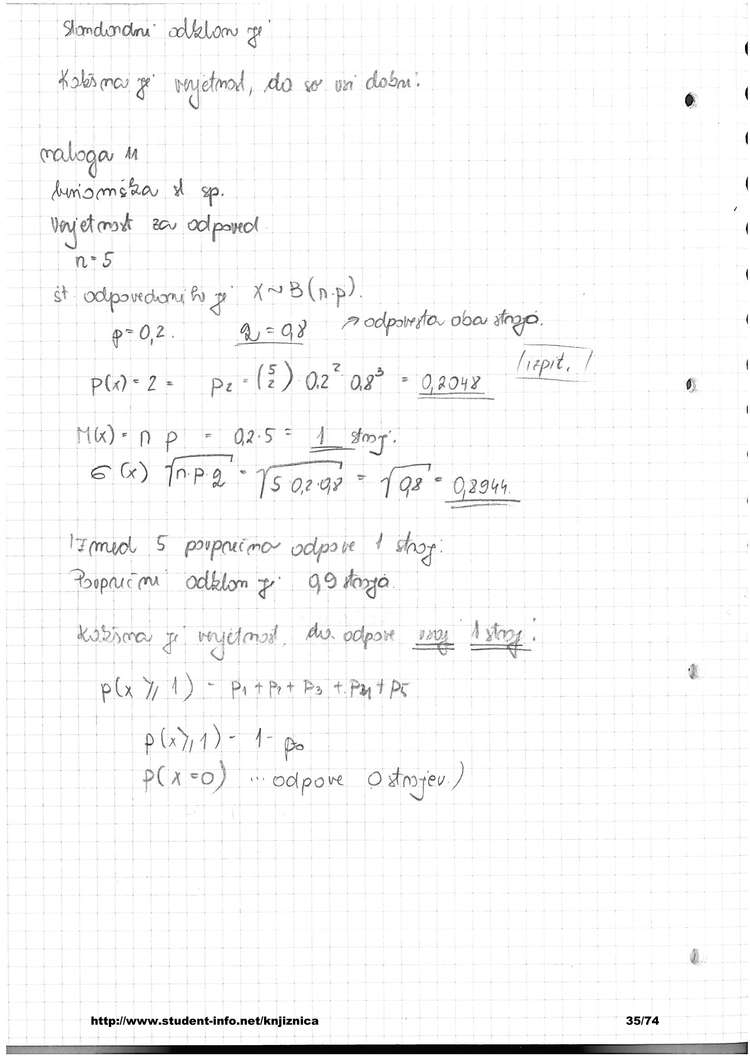 Standardni odklon je
Kolikšna je verjetnost, da so vsi dobri.
naloga 11
binomska sl sp.
Verjetnost za odpoved
n=5
št odpovedanih je X~B(n.p).
p=0,2. q=0,8 → odpovesta oba stroja.
P(x)=2 = P2 = (5 2) 0.2² 0,8³ = 0,2048 /izpit./
M(x) = n p = 0,2·5 = 1 stroj.
σ(x) √n·p·q = √5 0,2·0,8 = √0,8 = 0,8944.
Izmed 5 povprečno odpove 1 stroj.
Povprečni odklon je 0,9 stroja.
Kolikšna je verjetnost, da odpove vsaj 1 stroj.
p(x ≥ 1) = P1 + P2 + P3 + P4 + P5
p(x ≥ 1) = 1 - p0
P(x=0) ... odpove 0 strojev)
http://www.student-info.net/knjiznica 35/74